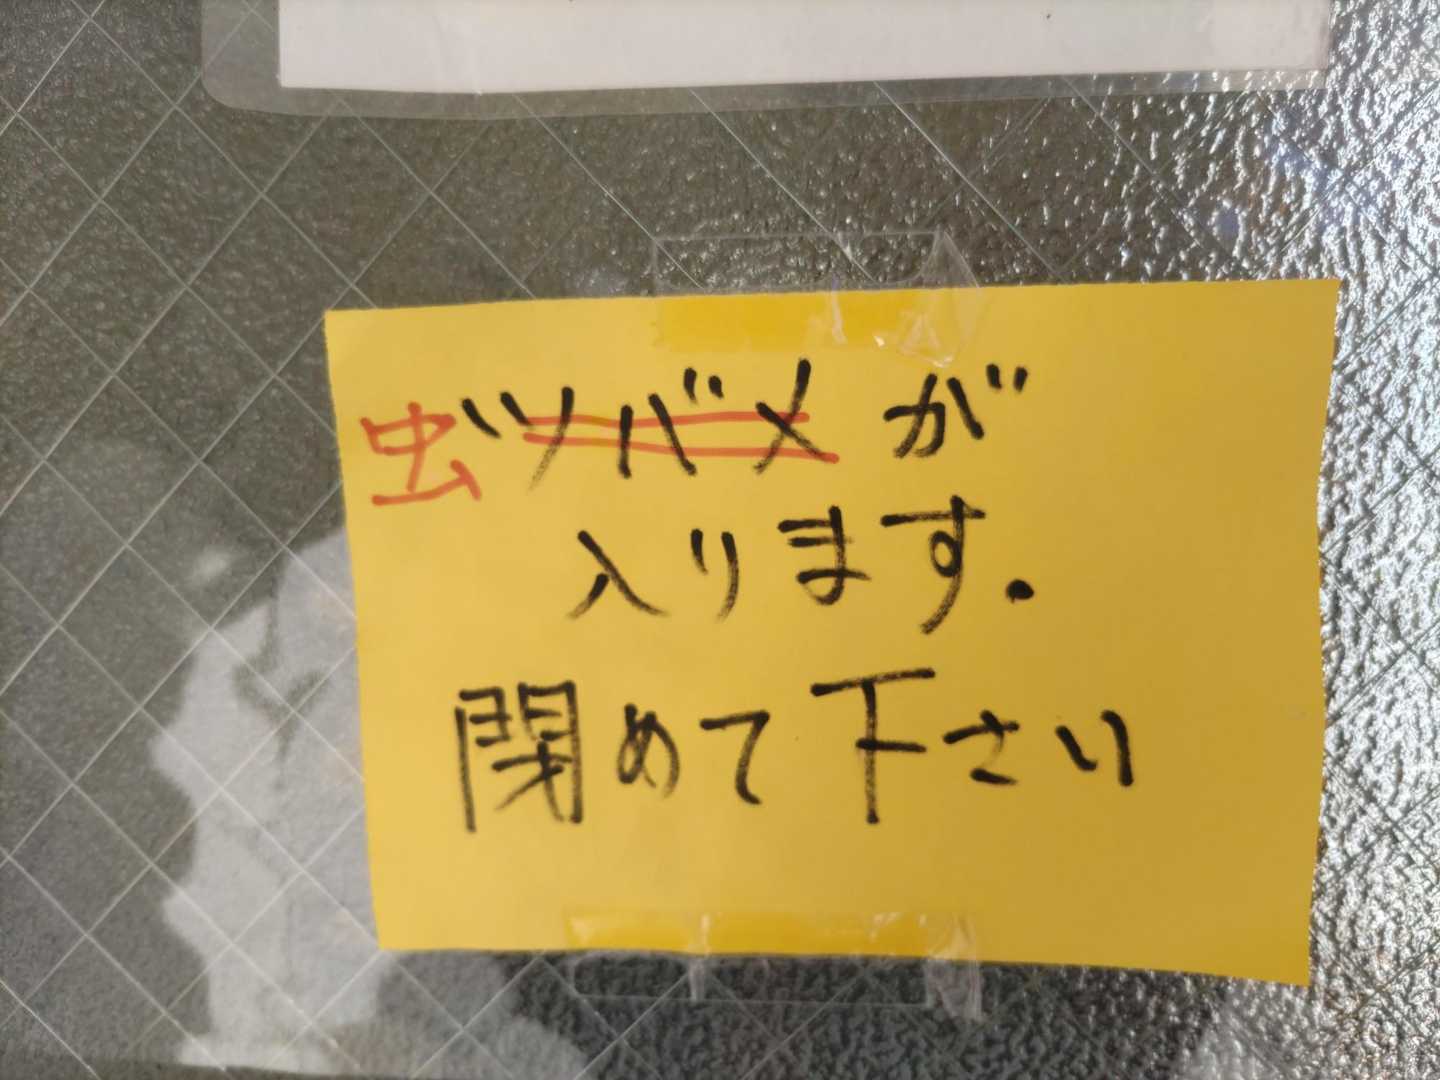 虫ツバメが
入ります.
閉めて下さい